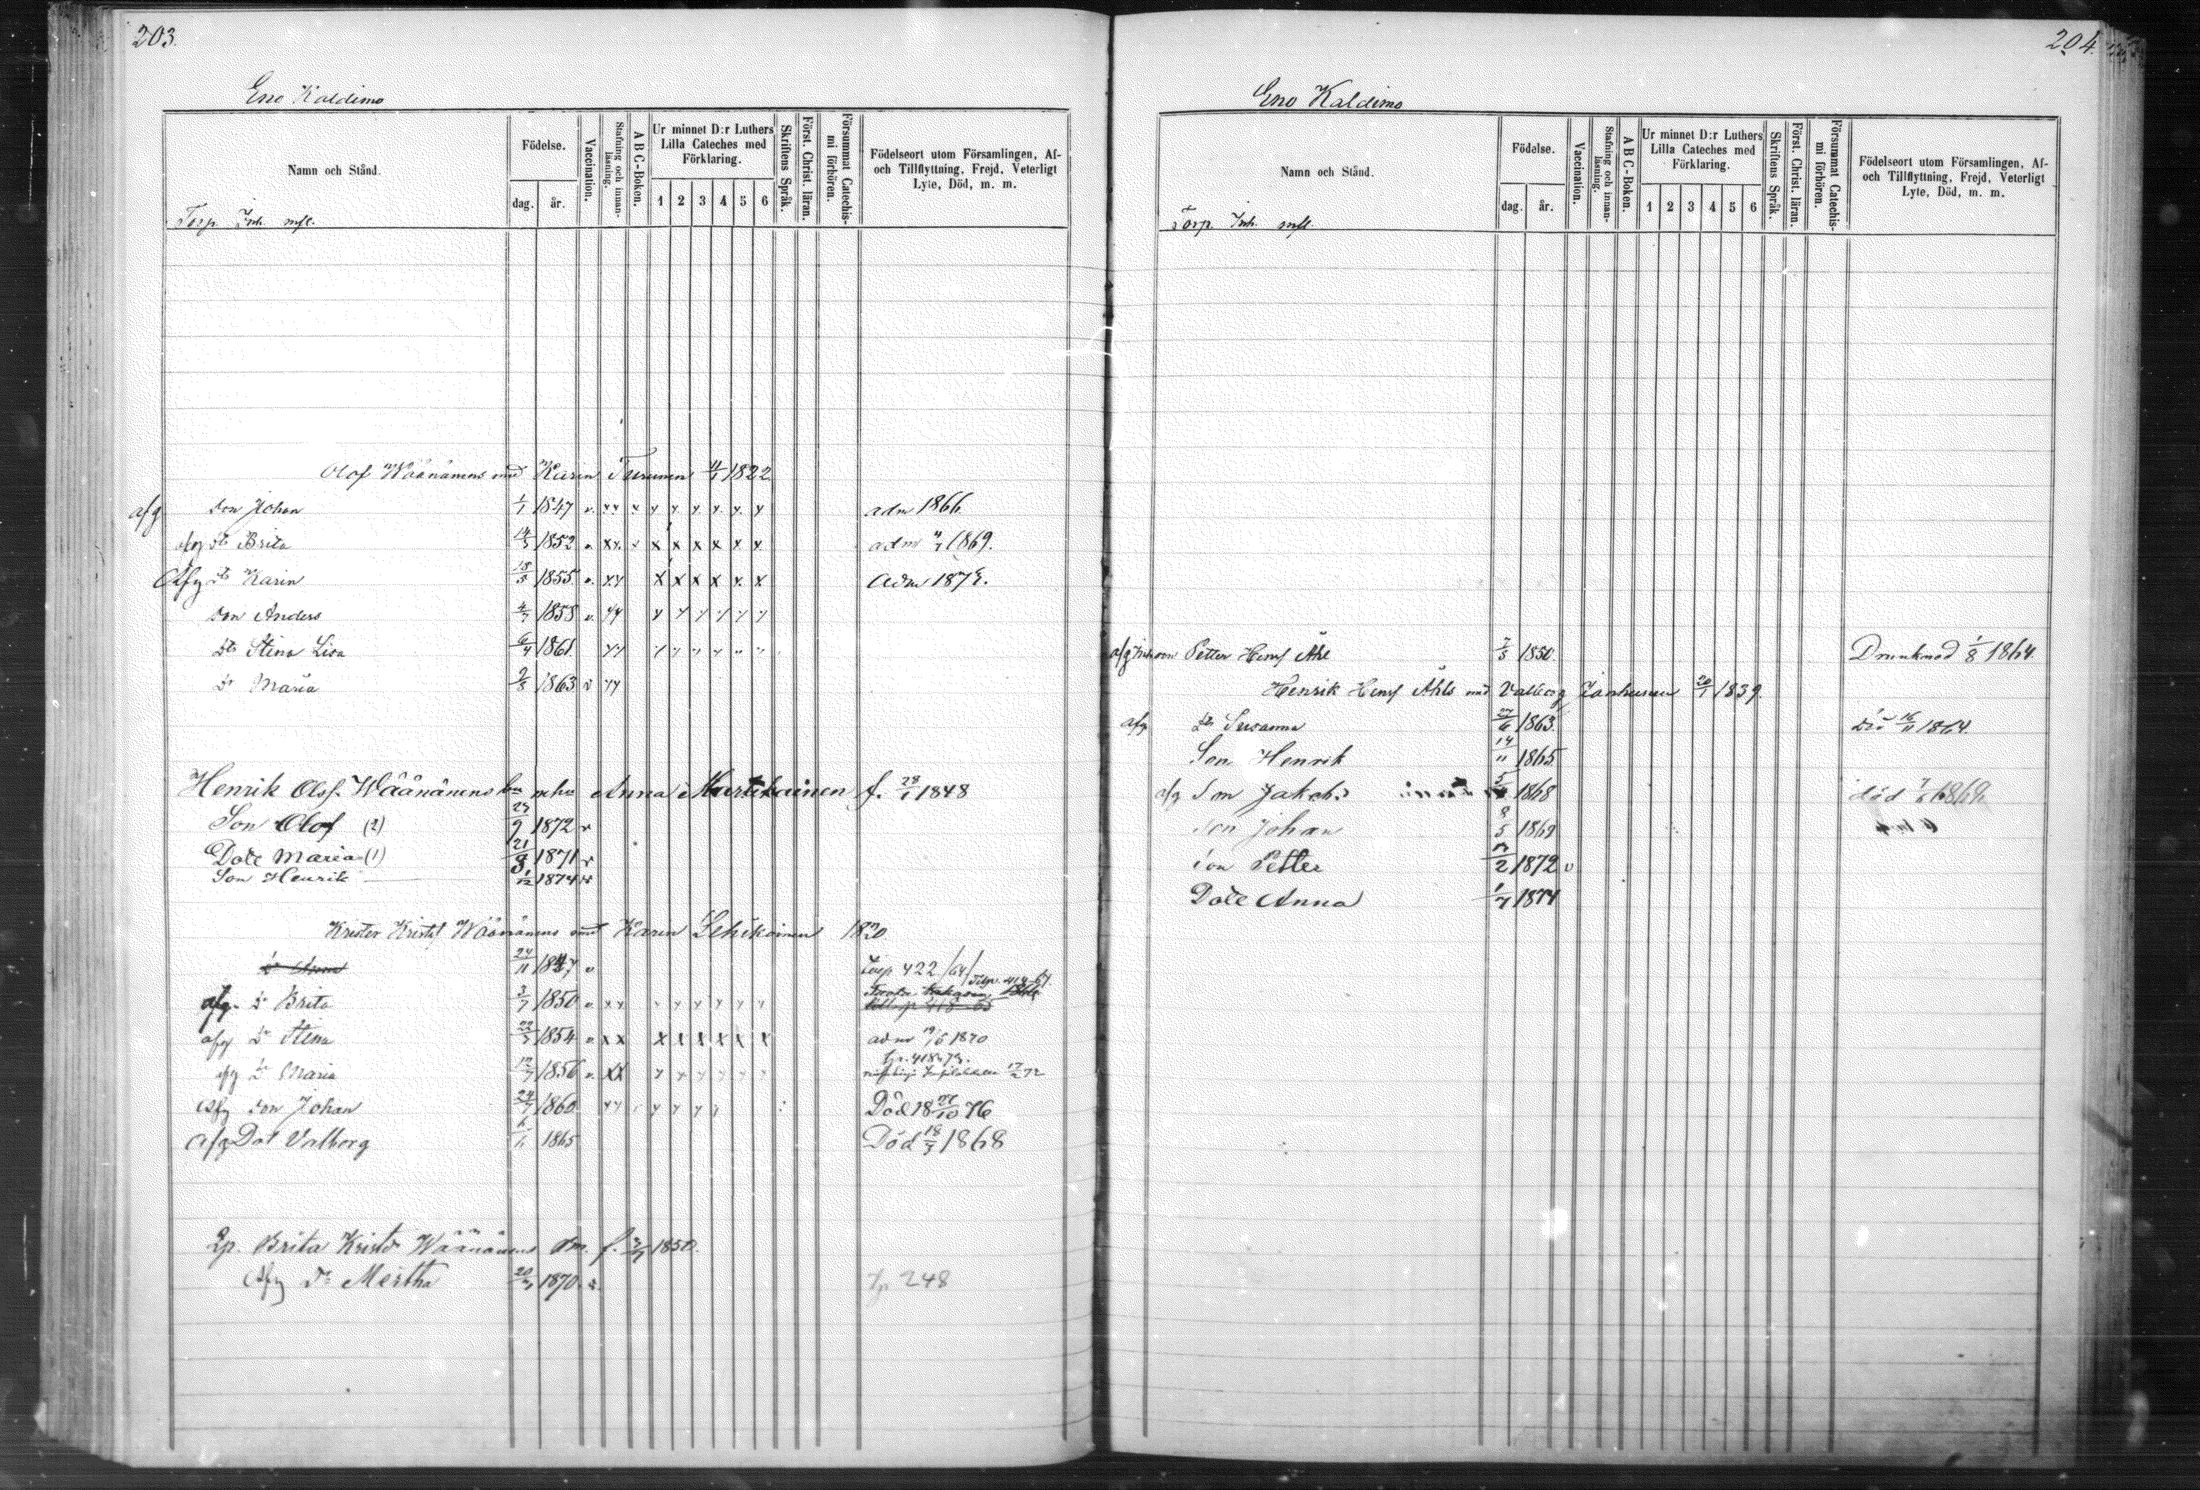 203.
Eno Kaldimo
Namn och Stånd.
Födelse.
dag.
år.
Vaccination.
Stafning och innanläsning.
ABC-Boken.
Ur minnet D:r Luthers Lilla Cateches med Förklaring.
1 2 3 4 5 6
Skriftens Språk.
Först. Christ. läran.
Försummat Catechismi förhören.
Födelseort utom Församlingen, Af- och Tillflyttning, Frejd, Veterligt Lyte, Död, m. m.
Torp. Inh. mfl.
Olof Wäänänens med Karin Turunen 1822
afg Son Johan 1/1 1847 v. xx x x x x x x x adm 1866
afg Dr Brita 1852 v xx x x x x x x adm 1869.
Afg Dr Karin 18/5 1855 v. xx x x x x x x adm 1872.
Son Anders 1858 v. xx x x x x x x
Dr Stina Lisa 1861 xx
Dr Maria 1863 v xx
Henrik Olofs. Wäänänens Anna Martikainen f. 28/1 1848
Son Olof (2) 1872 v
Dotr Maria (1) 21 1871 v
Son Henrik 1/12 1874 v
Krister Wäänänens med Karin Lehikoinen 1820
Dr Anna 24/11 1847 v 422/64/
afg. Dr Brita 3/7 1850 v xx
afg Dr Stina 1854 v xx x x x x x x adm 19/6 1870
afg Dr Maria 12/7 1856 v. xx
Afg Son Johan 24/7 1860 xx Död 18 76
afg Dot Valborg 1865 Död 1868
Lp. Brita Wäänänens f. 3/7 1850.
Afg Dr Mertha 20 1870. v. tp. 248
204.
Eno Kaldimo
Namn och Stånd.
Födelse.
dag.
år.
Vaccination.
Stafning och innanläsning.
ABC-Boken.
Ur minnet D:r Luthers Lilla Cateches med Förklaring.
1 2 3 4 5 6
Skriftens Språk.
Först. Christ. läran.
Försummat Catechismi förhören.
Födelseort utom Församlingen, Af- och Tillflyttning, Frejd, Veterligt Lyte, Död, m. m.
Torp. Inh. mfl.
afg Petter Henrs Åhl 7/5 1850. Drunknad 1/8 1864.
Henrik Henrs Åhls med Valborg 20/1 1839.
afg Dr Susanna 27/6 1863. Död 16/11 1864.
Son Henrik 14/11 1865
afg Son Jakob 1868 död
Son Johan 8/5 1869
Son Petter 1872 v
Dotr Anna 1/7 1874